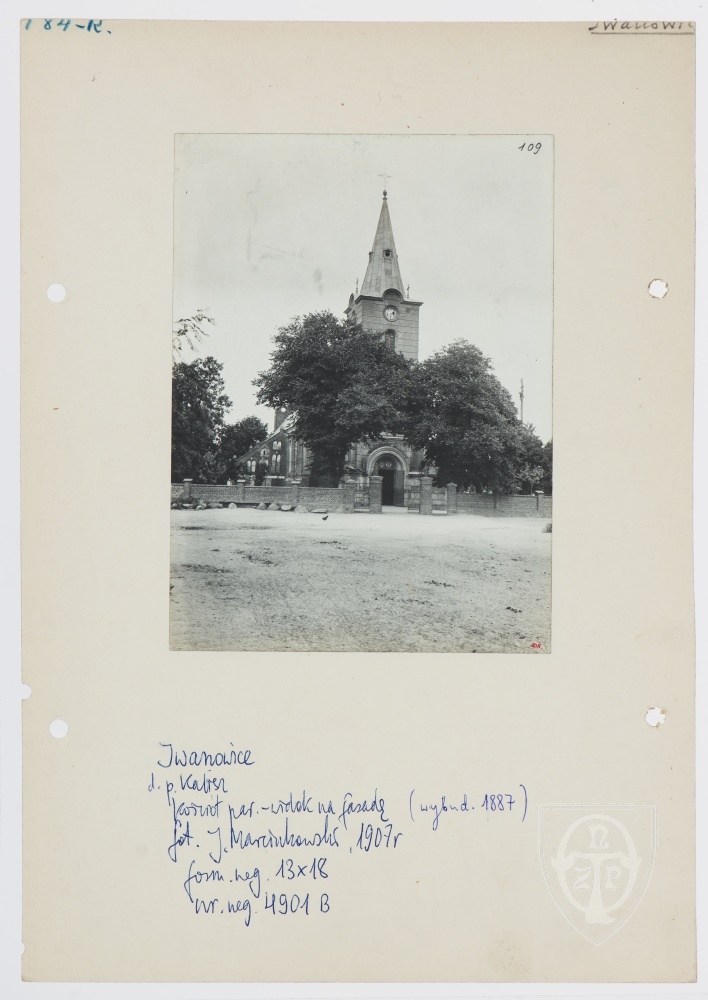 184-K.
Iwanowic
109
Iwanowice
d. p. Kalisz
kościół par. - widok na fasadę (wybud. 1887)
fot. J. Marcinkowski, 1907r
form. neg. 13x18
nr. neg. 4901 B
TNZP